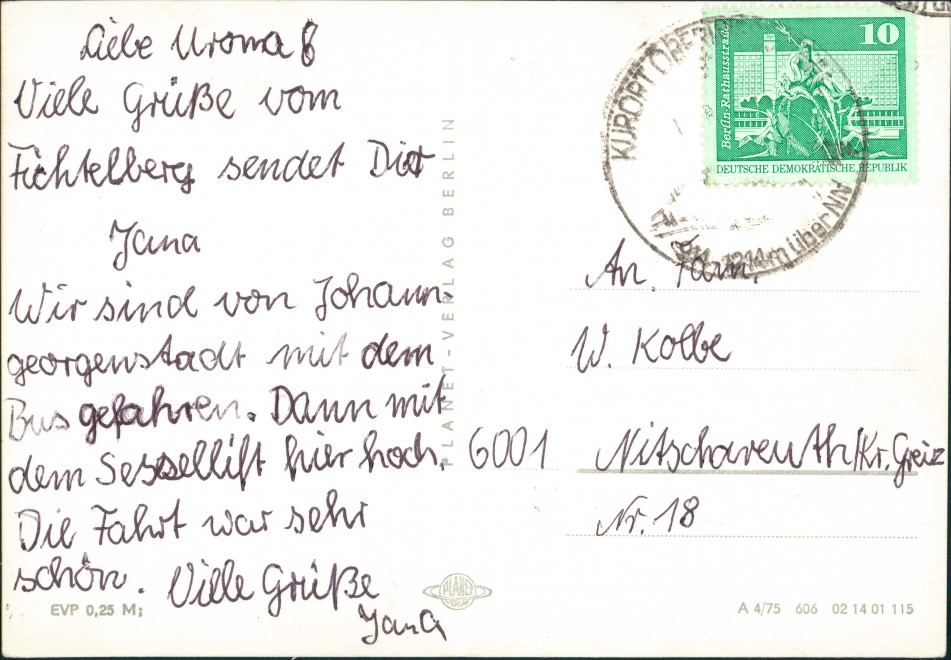 Liebe Uroma
Viele Grüße vom
Fichtelberg sendet Dir
Jana
Wir sind von Johann-
georgenstadt mit dem
Bus gefahren. Dann mit
dem Sessellift hier hoch.
Die Fahrt war sehr
schön. Viele Grüße
Jana
EVP 0,25 M;
PLANET-VERLAG BERLIN
PLANET
VERLAG
10
Berlin, Rathausstraße
DEUTSCHE DEMOKRATISCHE REPUBLIK
KURORT
1214 m über NN
An Fam.
W. Kolbe
6001 Nitschareuth/Kr. Greiz
Nr. 18
A 4/75 606 02 14 01 115